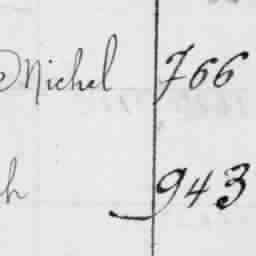 Michel 766
h 943